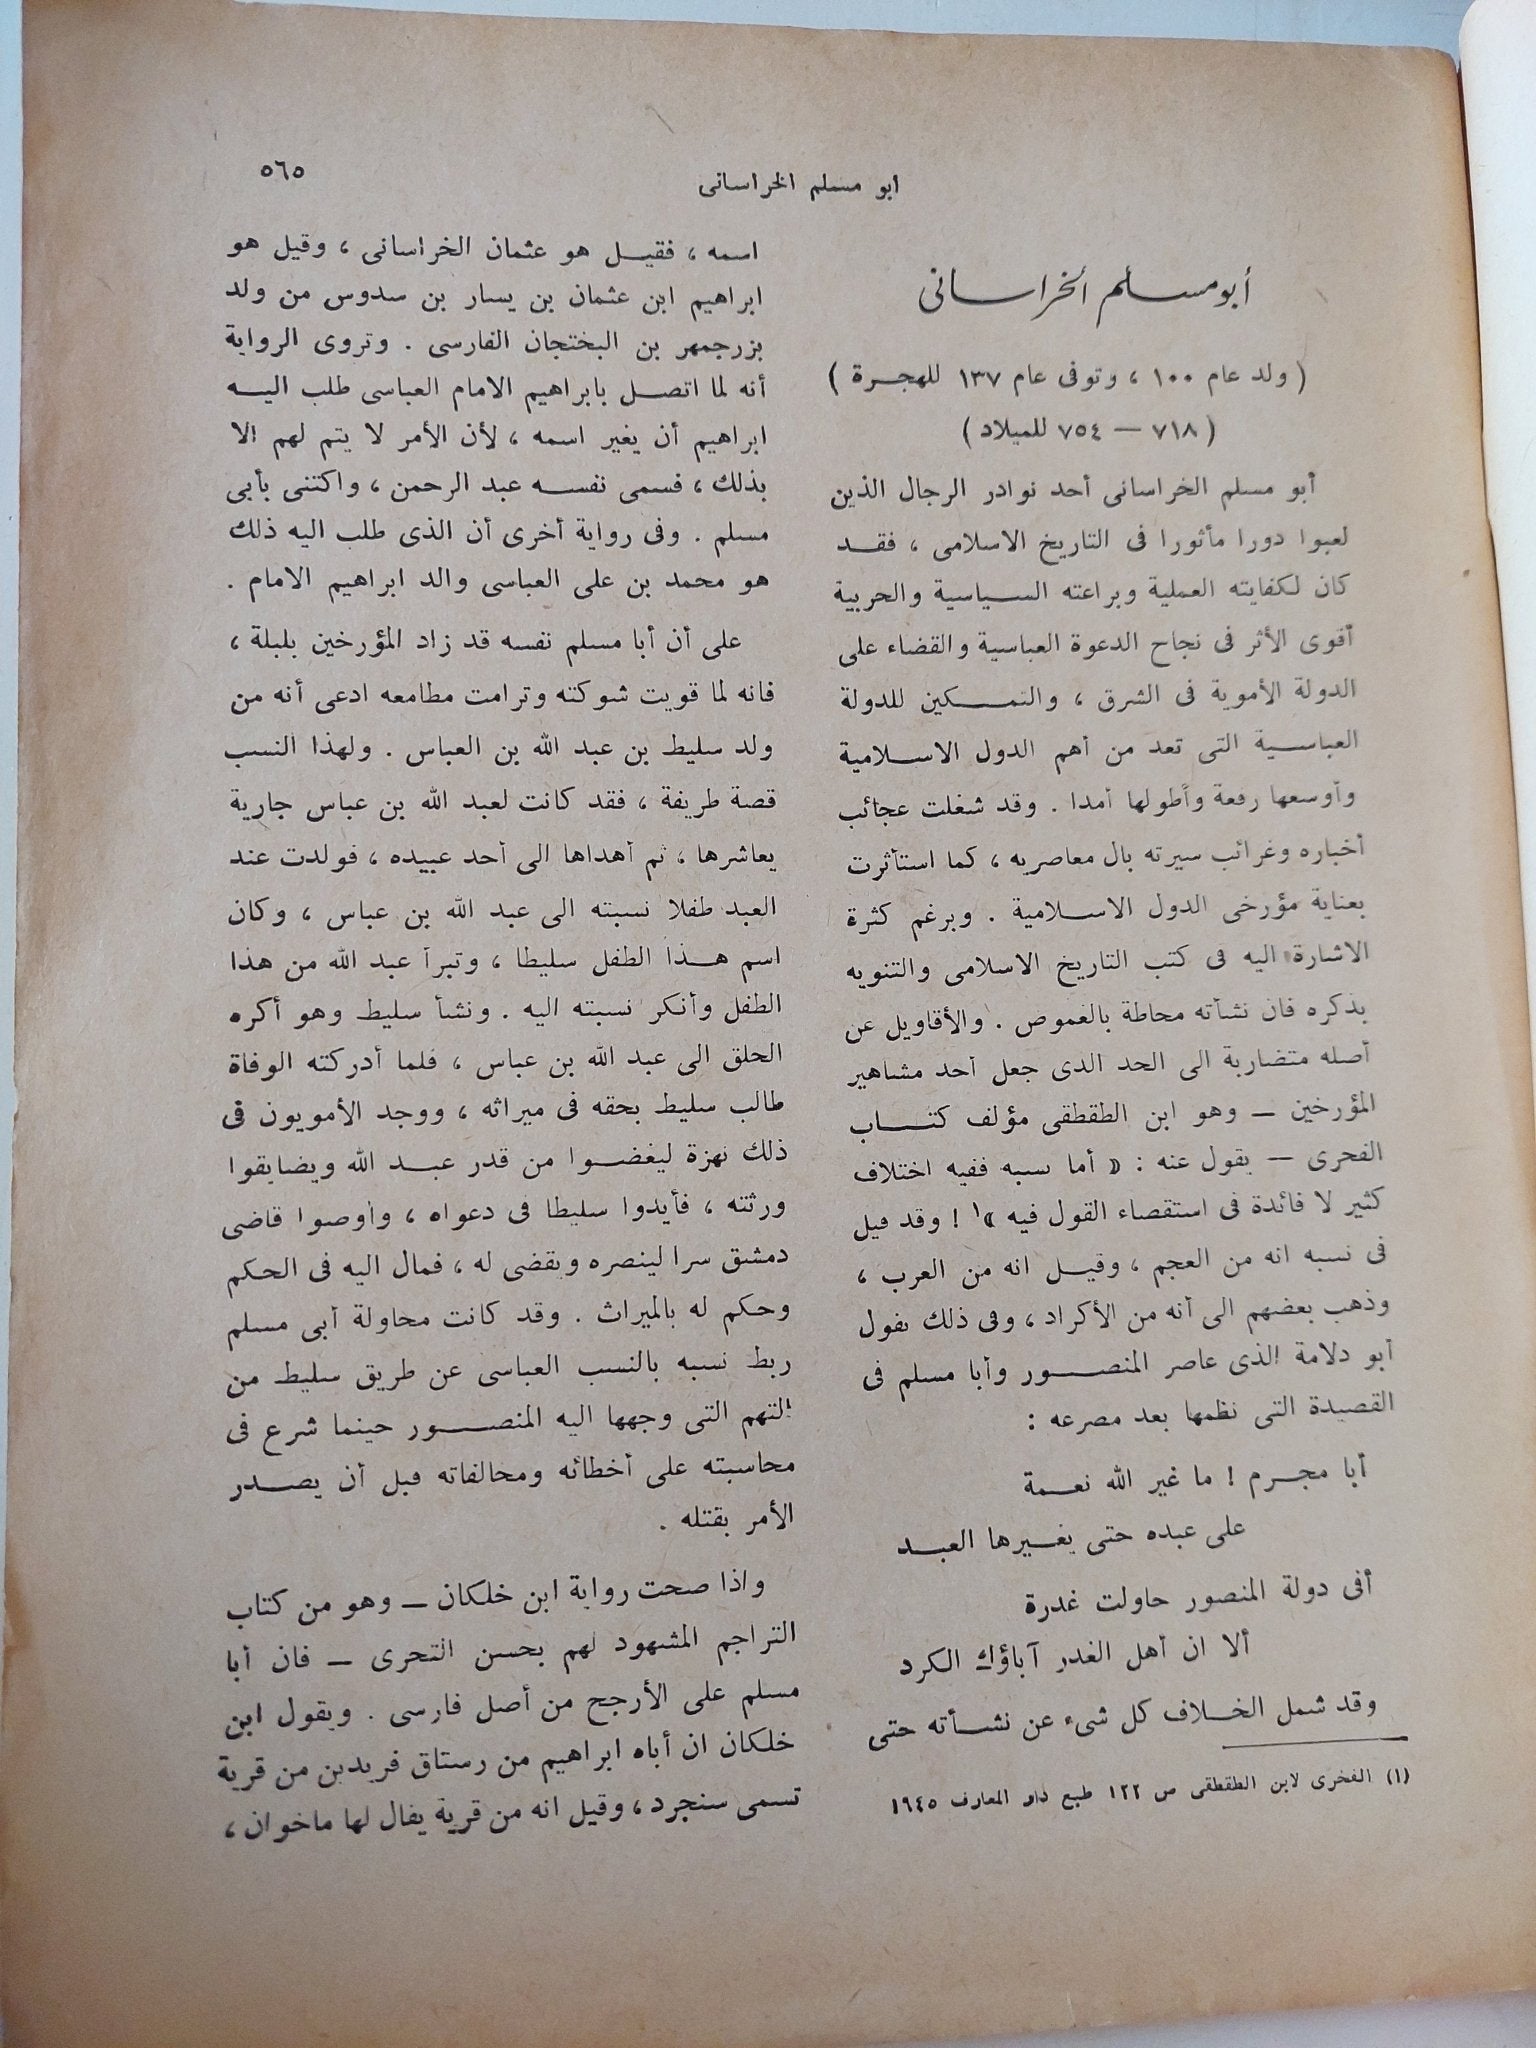 ابو مسلم الخراسانى
٥٦٥
أبو مسلم الخراسانى
( ولد عام ١٠٠ ، وتوفى عام ١٣٧ للهجـرة )
( ٧١٨ — ٧٥٤ للميلاد )
أبو مسلم الخراسانى أحد نوادر الرجال الذين
لعبوا دورا مأثورا فى التاريخ الاسلامى ، فقـد
كان لكفايته العملية وبراعته السـياسية والحربية
أقوى الأثر فى نجاح الدعوة العباسية والقضاء على
الدولة الأموية فى الشرق ، والتمـكين للدولة
العباسـية التى تعد من أهم الدول الاسـلامية
وأوسعها رفعة وأطولها أمدا . وقد شغلت عجائب
أخباره وغرائب سيرته بال معاصريه ، كما استأثرت
بعناية مؤرخى الدول الاسـلامية . وبرغم كثرة
الاشارة اليه فى كتب التاريخ الاسلامى والتنويه
بذكره فان نشأته محاطة بالغموض . والأقاويل عن
أصله متضاربة الى الحد الذى جعل أحد مشاهير
المؤرخين — وهو ابن الطقطقى مؤلف كتـاب
الفخرى — يقول عنه : « أما نسبه ففيه اختلاف
كثير لا فائدة فى استقصاء القول فيه »١ ! وقد قيل
فى نسبه انه من العجم ، وقيـل انه من العرب ،
وذهب بعضهم الى أنه من الأكراد ، وفى ذلك يقول
أبو دلامة الذى عاصر المنصـور وأبا مسلم فى
القصيدة التى نظمها بعد مصرعه :
أبا مجـرم ! ما غير الله نعـمة
على عبده حتى يغـيرها العبـد
أفى دولة المنصور حاولت غدرة
ألا ان أهل الغدر آباؤك الكرد
وقد شمل الخـلاف كل شىء عن نشـأته حتى
(١) الفخرى لابن الطقطقى ص ١٢٢ طبع دار المعارف ١٩٤٥
اسمه ، فقيـل هو عثمان الخراسانى ، وقيل هو
ابراهيم ابن عثمان بن يسار بن سدوس من ولد
بزرجمهر بن البختجان الفارسى . وتروى الرواية
أنه لما اتصـل بابراهيم الامام العباسى طلب اليـه
ابراهيم أن يغير اسمه ، لأن الأمر لا يتم لهم الا
بذلك ، فسمى نفسـه عبد الرحمن ، واكتنى بأبى
مسلم . وفى رواية أخرى أن الذى طلب اليه ذلك
هو محمد بن على العباسى والد ابراهيم الامام .
على أن أبا مسلم نفسه قد زاد المؤرخين بلبلة ،
فانه لما قويت شوكته وترامت مطامعه ادعى أنه من
ولد سليط بن عبد الله بن العباس . ولهذا النسب
قصة طريفة ، فقد كانت لعبد الله بن عباس جارية
يعاشرها ، ثم أهداها الى أحد عبيده ، فولدت عند
العبد طفلا نسبته الى عبد الله بن عباس ، وكان
اسم هـذا الطفل سليطا ، وتبرأ عبد الله من هذا
الطفل وأنكر نسبته اليه . ونشأ سليط وهو أكره
الخلق الى عبد الله بن عباس ، فلما أدركته الوفاة
طالب سليط بحقه فى ميراثه ، ووجد الأمويون فى
ذلك نهزة ليغضـوا من قدر عبـد الله ويضايقوا
ورثته ، فأيدوا سليطا فى دعواه ، وأوصوا قاضى
دمشق سرا لينصره ويقضى له ، فمال اليه فى الحكم
وحكم له بالميراث . وقد كانت محاولة أبى مسلم
ربط نسبه بالنسب العباسى عن طريق سليط من
التهم التى وجهها اليه المنصـور حينما شرع فى
محاسبته على أخطائه ومخالفاته قبل أن يصـدر
الأمر بقتله .
واذا صحت رواية ابن خلكان — وهو من كتاب
التراجم المشهود لهم بحسن التحرى — فان أبا
مسلم على الأرجح من أصل فارسى . ويقول ابن
خلكان ان أباه ابراهيم من رستاق فريدين من قرية
تسمى سنجرد ، وقيل انه من قرية يقال لها ماخوان ،